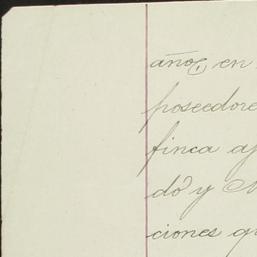 año, en
poseedore
finca a
do y
ciones q